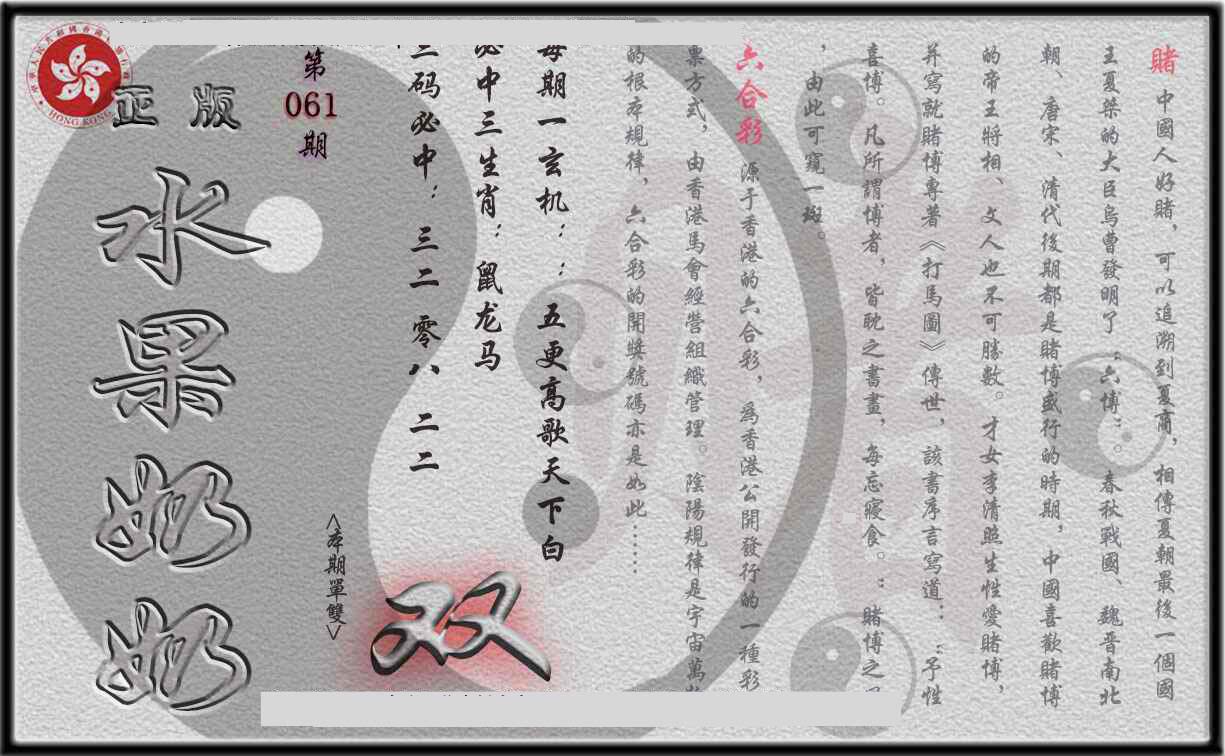 賭 中國人好賭，可以追溯到夏商，相傳夏朝最後一個國
王夏桀的大臣烏曹發明了“六博”。春秋戰國、魏晋南北
朝、唐宋、清代後期都是賭博盛行的時期，中國喜歡賭博
的帝王將相、文人也不可勝數。才女李清照生性愛賭博，
并寫就賭博專著《打馬圖》傳世，該書序言寫道：“予性
喜博。凡所謂博者，皆耽之書畫，每忘寢食。”賭博之
，由此可窺一斑。
六合彩 源于香港的六合彩，爲香港公開發行的一種彩
票方式，由香港馬會經營組織管理。陰陽規律是宇宙萬
的根本規律，六合彩的開獎號碼亦是如此……
每期一玄机：：五更高歌天下白
必中三生肖：鼠龙马
三码必中：三二 零八 二二
第
061
期
<本期單雙>
双
正版
水果奶奶
HONG KONG